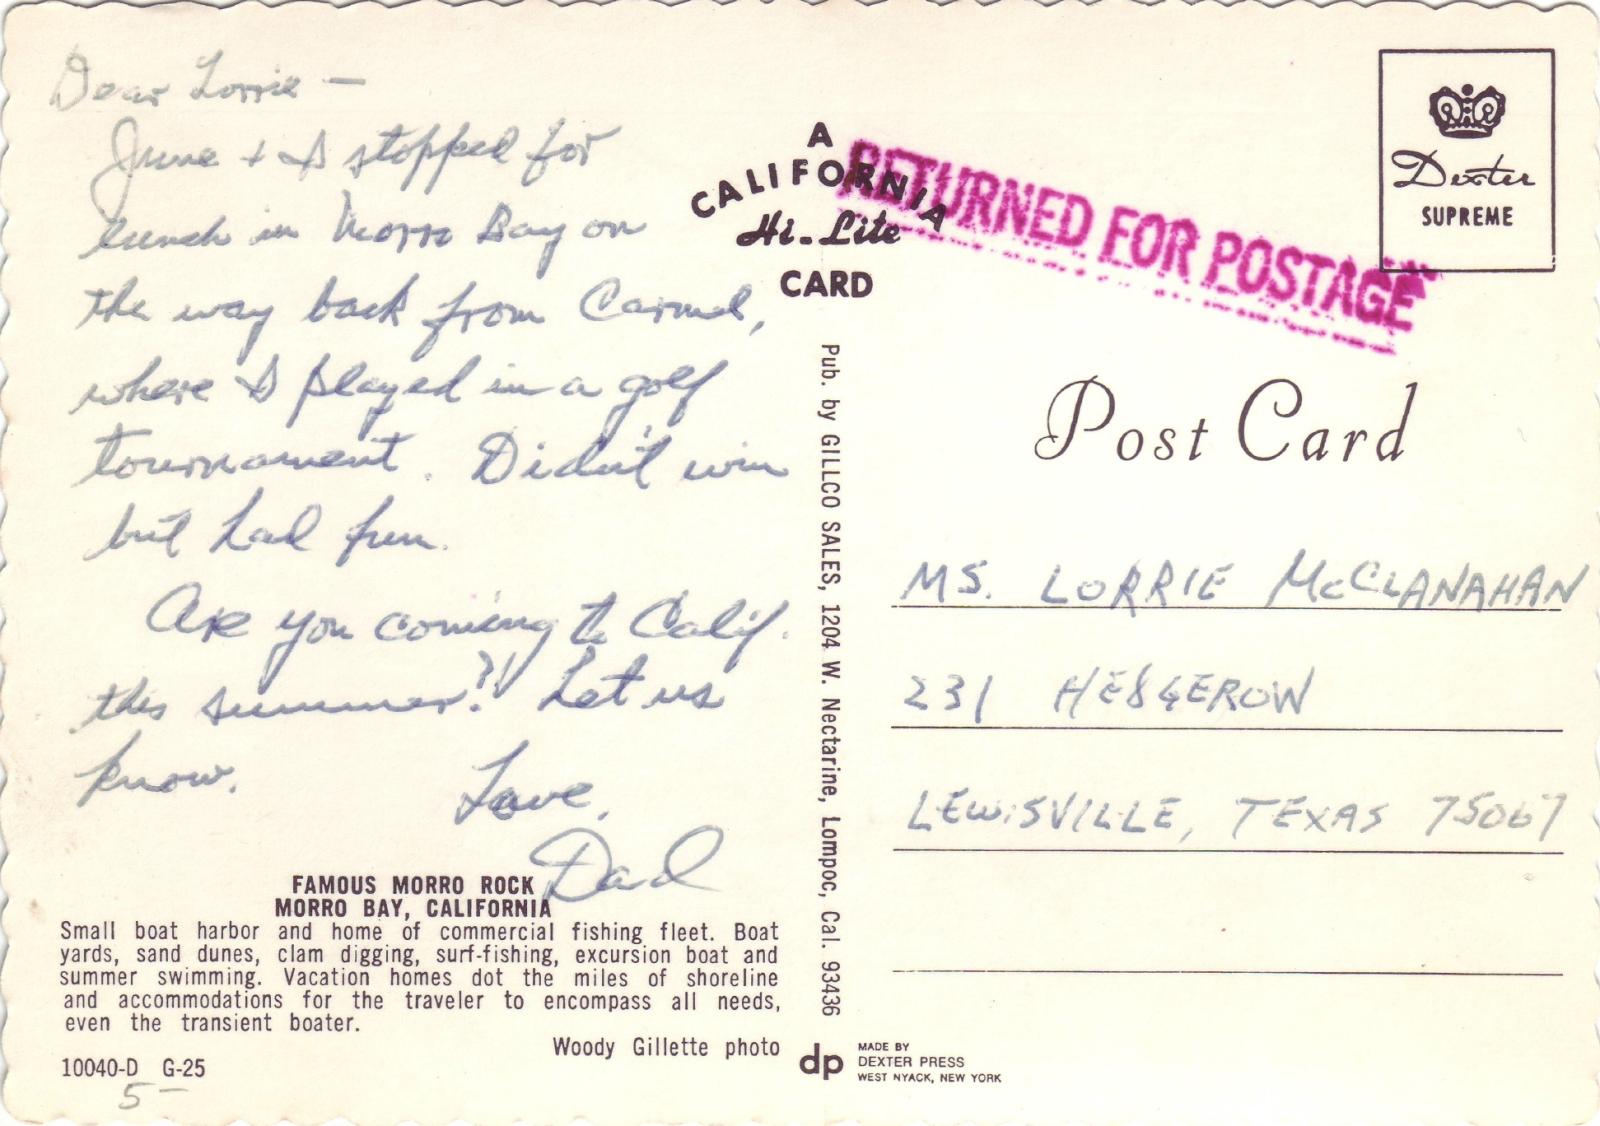 Dear Lorrie —
June + I stopped for
lunch in Morro Bay on
the way back from Carmel,
where I played in a golf
tournament. Didn't win
but had fun.
Are you coming to Calif.
this summer?! Let us
know.
Love,
Dad
FAMOUS MORRO ROCK
MORRO BAY, CALIFORNIA
Small boat harbor and home of commercial fishing fleet. Boat
yards, sand dunes, clam digging, surf-fishing, excursion boat and
summer swimming. Vacation homes dot the miles of shoreline
and accommodations for the traveler to encompass all needs,
even the transient boater.
Woody Gillette photo
10040-D G-25
5-
A
CALIFORNIA
Hi-Lite
CARD
Pub. by GILLCO SALES, 1204 W. Nectarine, Lompoc, Cal. 93436
dp
MADE BY
DEXTER PRESS
WEST NYACK, NEW YORK
RETURNED FOR POSTAGE
Dexter
SUPREME
Post Card
MS. LORRIE McCLANAHAN
231 HEDGEROW
LEWISVILLE, TEXAS 75067